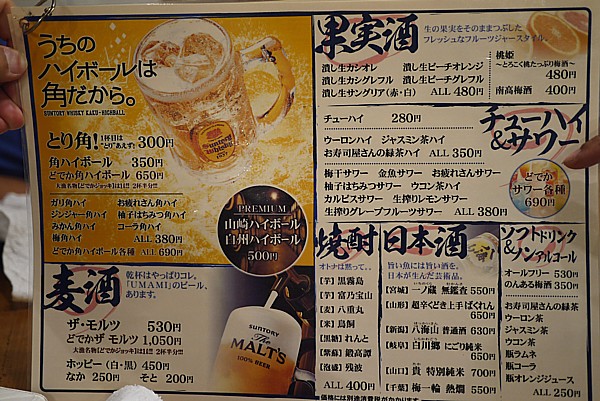 うちの
ハイボールは
角だから。
SUNTORY WHISKY KAKU-HIGHBALL
Suntory
Whisky
とり角! 1杯目は“とりあえず” 300円
角ハイボール 350円
どでか角ハイボール 650円
ガリ角ハイ お疲れさん角ハイ
ジンジャー角ハイ 柚子はちみつ角ハイ
みかん角ハイ コーラ角ハイ
梅角ハイ ALL 380円
どでか角ハイボール各種 ALL 690円
PREMIUM
山崎ハイボール
白州ハイボール
500円
麦酒
乾杯はやっぱりコレ。
「UMAMI」のビール、
あります。
ザ・モルツ 530円
どでかザ・モルツ 1,050円
ホッピー(白・黒) 450円
なか 250円 そと 200円
SUNTORY
The
MALT'S
100% BEER
果実酒
生の果実をそのままつぶした
フレッシュなフルーツジャースタイル。
潰し生カシオレ 潰し生ピーチオレンジ
潰し生カシグレフル 潰し生ピーチグレフル
潰し生サングリア(赤・白) ALL 480円
桃姫
～とろこく桃たっぷり梅酒～
480円
南高梅酒 400円
チューハイ
&サワー
チューハイ 280円
ウーロンハイ ジャスミン茶ハイ
お寿司屋さんの緑茶ハイ ALL 350円
梅干サワー 金魚サワー お疲れさんサワー
柚子はちみつサワー ウコン茶ハイ
カルピスサワー 生搾りレモンサワー
生搾りグレープフルーツサワー ALL 380円
どでか
サワー各種
690円
焼酎
オトナは黙って。。
【芋】黒霧島
【芋】富乃宝山
【麦】八重丸
【米】鳥飼
【黒糖】れんと
【紫蘇】鍛高譚
【泡盛】残波
ALL 400円
日本酒
旨い魚には旨い酒を。
日本が生んだ芸術品。
【宮城】一ノ蔵 無鑑査 550円
【山形】超辛くどき上手ばくれん 650円
【新潟】八海山 普通酒 630円
【岐阜】白川郷 にごり純米 550円
【山口】貴 特別純米 700円
【千葉】梅一輪 熱燗 550円
ソフトドリンク
&ノンアルコール
オールフリー 530円
のんある梅酒 350円
お寿司屋さんの緑茶
ウーロン茶
ジャスミン茶
ウコン茶
瓶ラムネ
瓶コーラ
瓶オレンジジュース
ALL 250円
■価格には別途消費税がかかります。